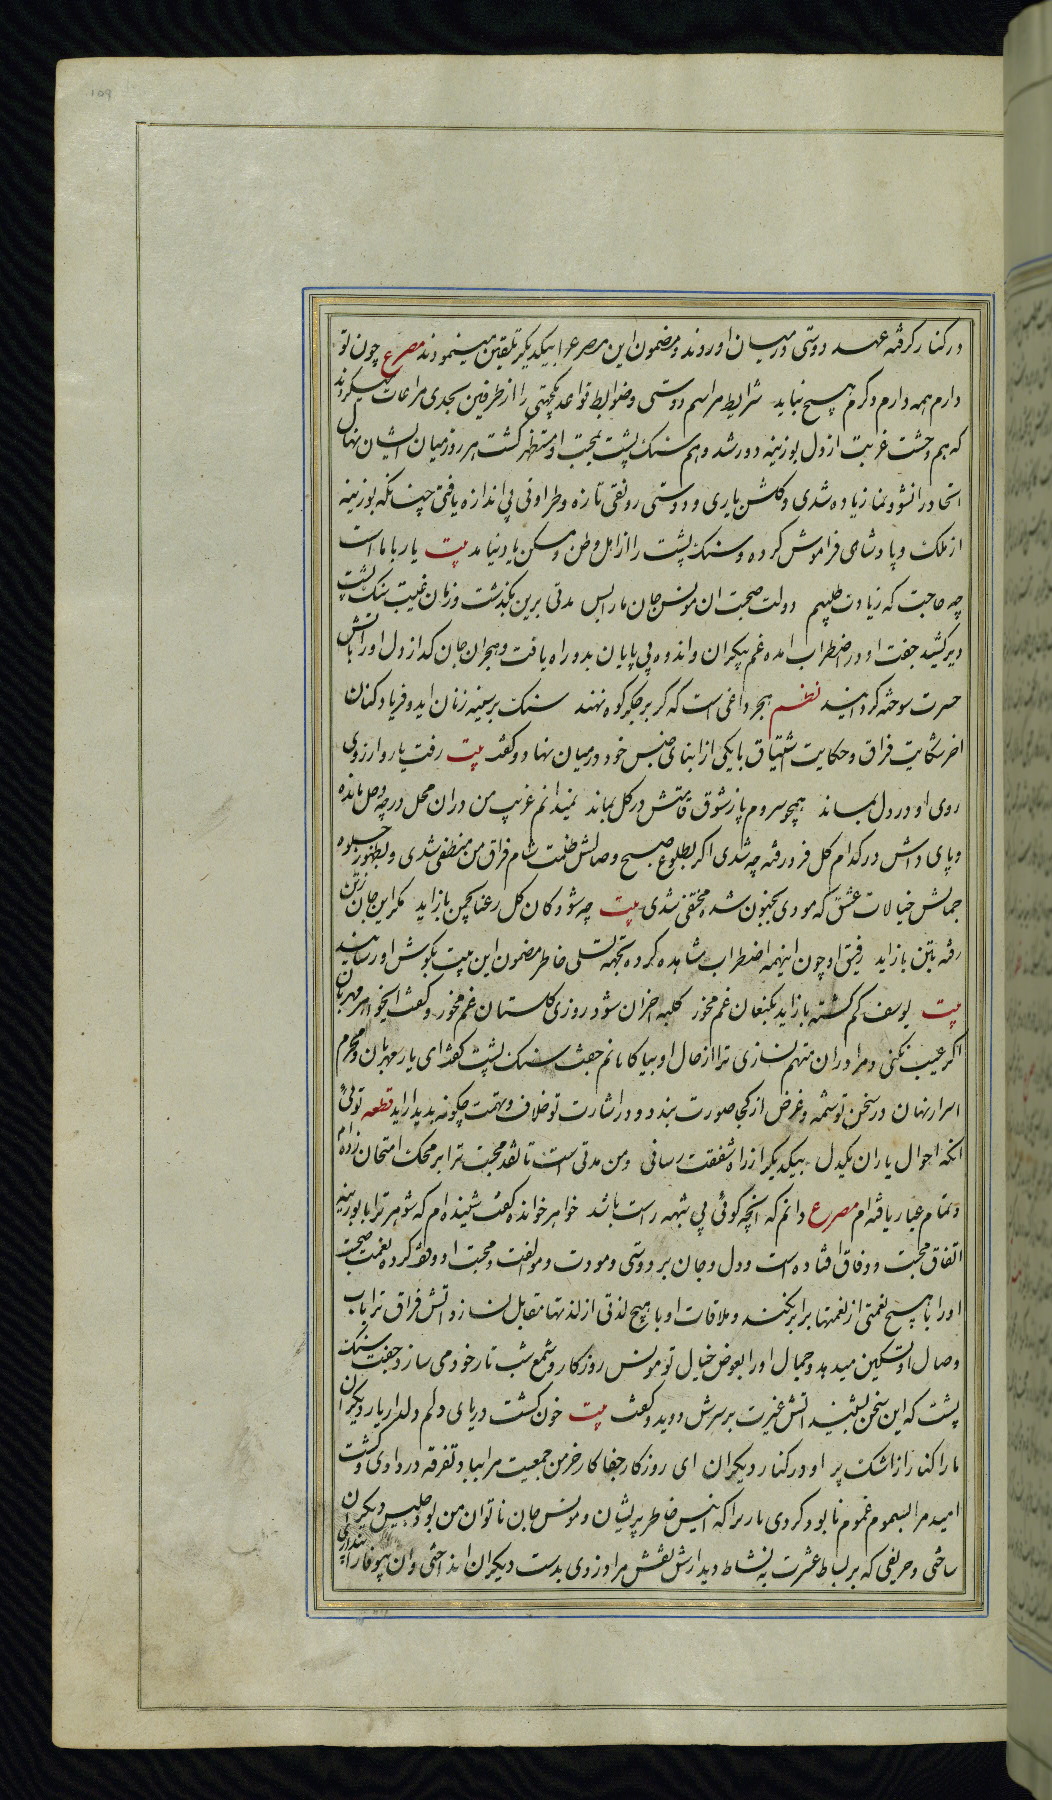 در کنار گرفته عهد دوستی در میان اوردند و مضمون این مصرع را بیکدیگر تلقین مینمودند مصرع چون تو
دارم همه دارم دگرم هیچ نباید شرایط مراسم دوستی و ضوابط قواعد یکجهتی را از طرفین بجدی مراعات میکردند
که هم وحشت غربت از دل بوزینه دور شد و هم سنک پشت بمحبت او مستظهر گشت هر روز میان ایشان نهال
اتحاد را نشو و نما زیاده شدی و گلشن یاری و دوستی رونقی تازه و طراوتی بی اندازه یافتی چنانکه بوزینه
از ملک و پادشاهی فراموش کرده و سنک پشت را از اهل و وطن و مسکن یاد نیامد بیت یار با ما است
چه حاجت که زیادت طلبیم دولت صحبت ان مونس جان ما را بس مدتی برین بگذشت و زمان غیبت سنک پشت
دیر کشید جفت او در اضطراب امده غم بیکران و اندوه بی پایان بدو راه یافت و هجران جان گداز دل او را باتش
حسرت سوخته گردانید نظم هجر داغی است که گر بر جگر کوه نهند سنک بر سینه زنان اید و فریاد کنان
اخر شکایت فراق و حکایت اشتیاق با یکی از ابنای جنس خود در میان نهاد و گفت بیت رفت یار و ارزوی
روی او در دل بماند همچو سروم پا ز شوق قامتش در گل بماند نمیدانم غریب من دران محل در چه وحل مانده
و پای دلش در کدام گل فرو رفته چه شدی اگر بطلوع صبح وصالش ظلمت شام فراق من منطفی شدی و بظهور جلوه
جمالش خیالات عشق که مودی بجنون شده مختفی شدی بیت چه شود کان گل رعنا بچمن باز اید مگر این جان ز تن
رفته بتن باز اید رفیق او چون اینهمه اضطراب مشاهده کرده بجهة تسلی خاطر مضمون این بیت بگوش او رسانید
بیت یوسف گم گشته باز اید بکنعان غم مخور کلبه احزان شود روزی گلستان غم مخور و گفت ایخواهر مهربان
اگر عیب نکنی و مرا دران متهم نسازی ترا از حال او بیاگاهانم جفت سنک پشت گفت ای یار مهربان و محرم
اسرار نهان در سخن تو شبهه و غرض از کجا صورت بندد و در اشارت تو خلاف و تهمت چگونه بدیدار اید قطعه توئی
انکه احوال یاران یکدل بیکدیگر از راه شفقت رسانی و من مدتی است تا نقد محبت ترا بر محک امتحان زده ام
و تمام عیار یافته ام مصرع دانم که انچه گوئی بی شبهه راست باشد خواهر خوانده گفت شنیده ام که شوهر ترا با بوزینه
اتفاق محبت و وفاق افتاده است و دل و جان بر دوستی و مودت و موالفت و محبت او وقف کرده نعمت صحبت
او را با هیچ نعمتی از نعمتها برابر نکند و ملاقات او با هیچ لذتی از لذتها مقابل نسازد و اتش فراق ترا باب
وصال او تسکین میدهد و جمال او را بعوض خیال تو مونس روزگار و شمع شب تار خود می سازد جفت سنک
پشت که این سخن بشنید اتش غیرت بر سرش دوید و گفت بیت خون گشت دریای دلم دلدار یار دیگران
ما را کنار از اشک پر او در کنار دیگران ای روزگار جفاکار خرمن جمعیت مرا بباد تفرقه در دادی و کشت
امید مرا بسموم غموم نابود کردی یار مرا که انیس خاطر پریشان و مونس جان ناتوان من بود جلیس دیگران
ساختی و حریفی که بر بساط عشرت به نشاط دیدارش نقش مراد زدمی بدست دیگران انداختی و ان بیوفا را